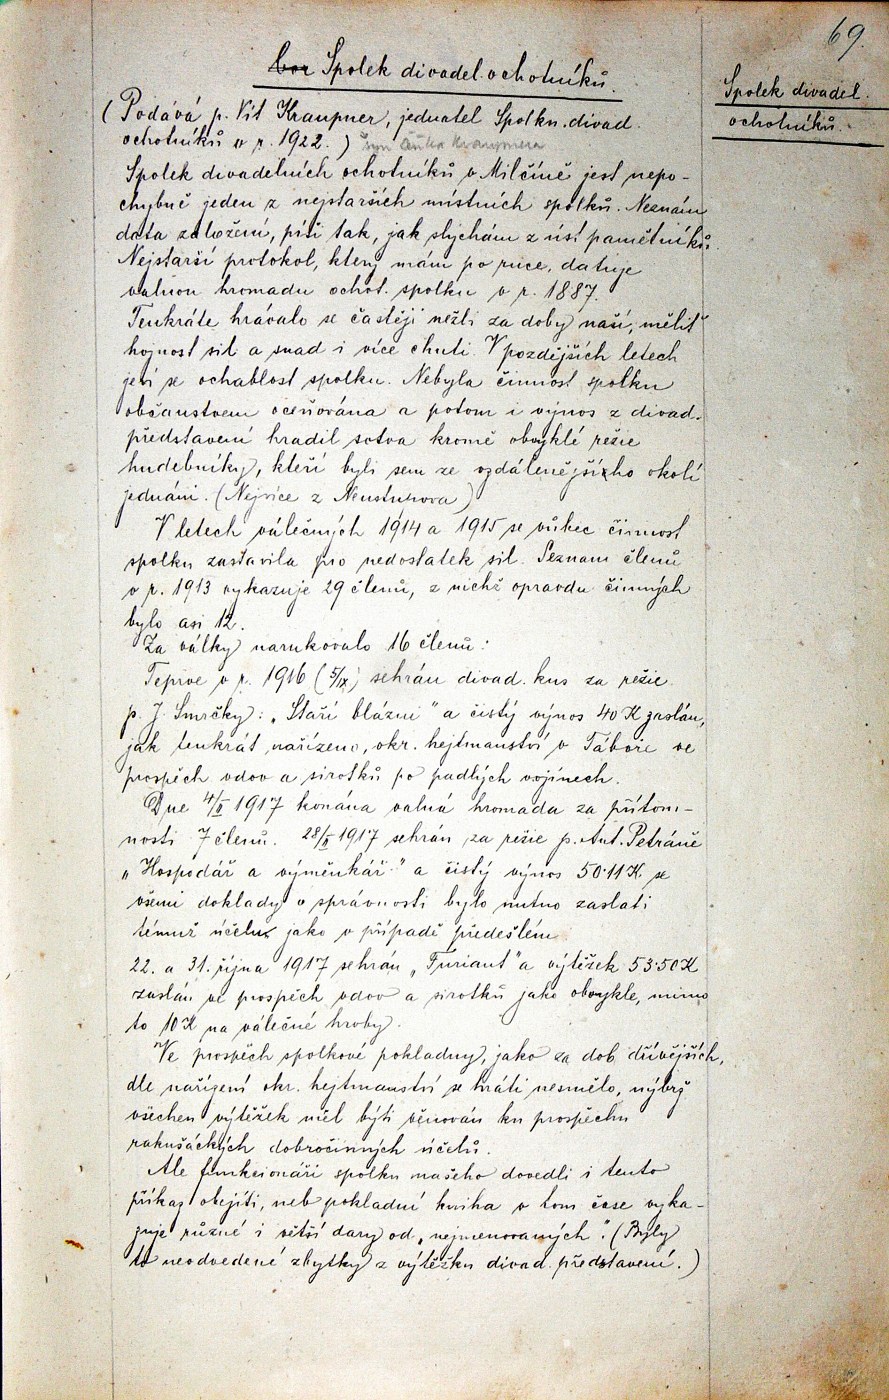 69.
Spolek divadel. ochotníků.
Spolek divadel.
ochotníků.
(Podává p. Vít Kraupner, jednatel Spolku divad.
ochotníků v r. 1922.) syn Kraupnera
Spolek divadelních ochotníků v Milčíně jest nepo-
chybně jeden z nejstarších místních spolků. Neznám
data založení, píši tak, jak slýchám z úst pamětníků.
Nejstarší protokol, který mám po ruce, datuje
valnou hromadu ochot. spolku v r. 1887.
Tenkráte hrávalo se častěji nežli za doby naší, měliť
hojnost sil a snad i více chuti. V pozdějších letech
jeví se ochablost spolku. Nebyla činnost spolku
občanstvem oceňována a potom i výnos z divad.
představení hradil sotva kromě obvyklé režie
hudebníky, kteří byli sem ze vzdálenějšího okolí
jednáni. (Nejvíce z Neustupova)
V letech válečných 1914 a 1915 se vůbec činnost
spolku zastavila pro nedostatek sil. Seznam členů
v r. 1913 vykazuje 29 členů, z nichž opravdu činných
bylo asi 12.
Za války narukovalo 16 členů:
Teprve v r. 1916 (5/IX) sehrán divad. kus za režie
p. J. Smrčky: „Staří blázni" a čistý výnos 40 K zaslán,
jak tenkrát nařízeno, okr. hejtmanství v Táboře ve
prospěch vdov a sirotků po padlých vojínech.
Dne 4/II 1917 konána valná hromada za přítom-
nosti 7 členů. 28/II 1917 sehrán za režie p. Ant. Petráně
„Hospodář a výměnkář" a čistý výnos 50·11 K se
všemi doklady o správnosti bylo nutno zaslati
témuž účelu jako v případě předešlém
22. a 31. října 1917 sehrán „Furiant" a výtěžek 53·50 K
zaslán ve prospěch vdov a sirotků jako obvykle, mimo
to 10 K na válečné hroby.
Ve prospěch spolkové pokladny, jako za dob dřívějších,
dle nařízení okr. hejtmanství se hráti nesmělo, nýbrž
všechen výtěžek měl býti věnován ku prospěchu
rakušáckých dobročinných účelů.
Ale funkcionáři spolku našeho dovedli i tento
příkaz obejíti, neb pokladní kniha v tom čase vyka-
zuje různé i větší dary od „nejmenovaných". (Byly
to neodvedené zbytky z výtěžku divad. představení.)